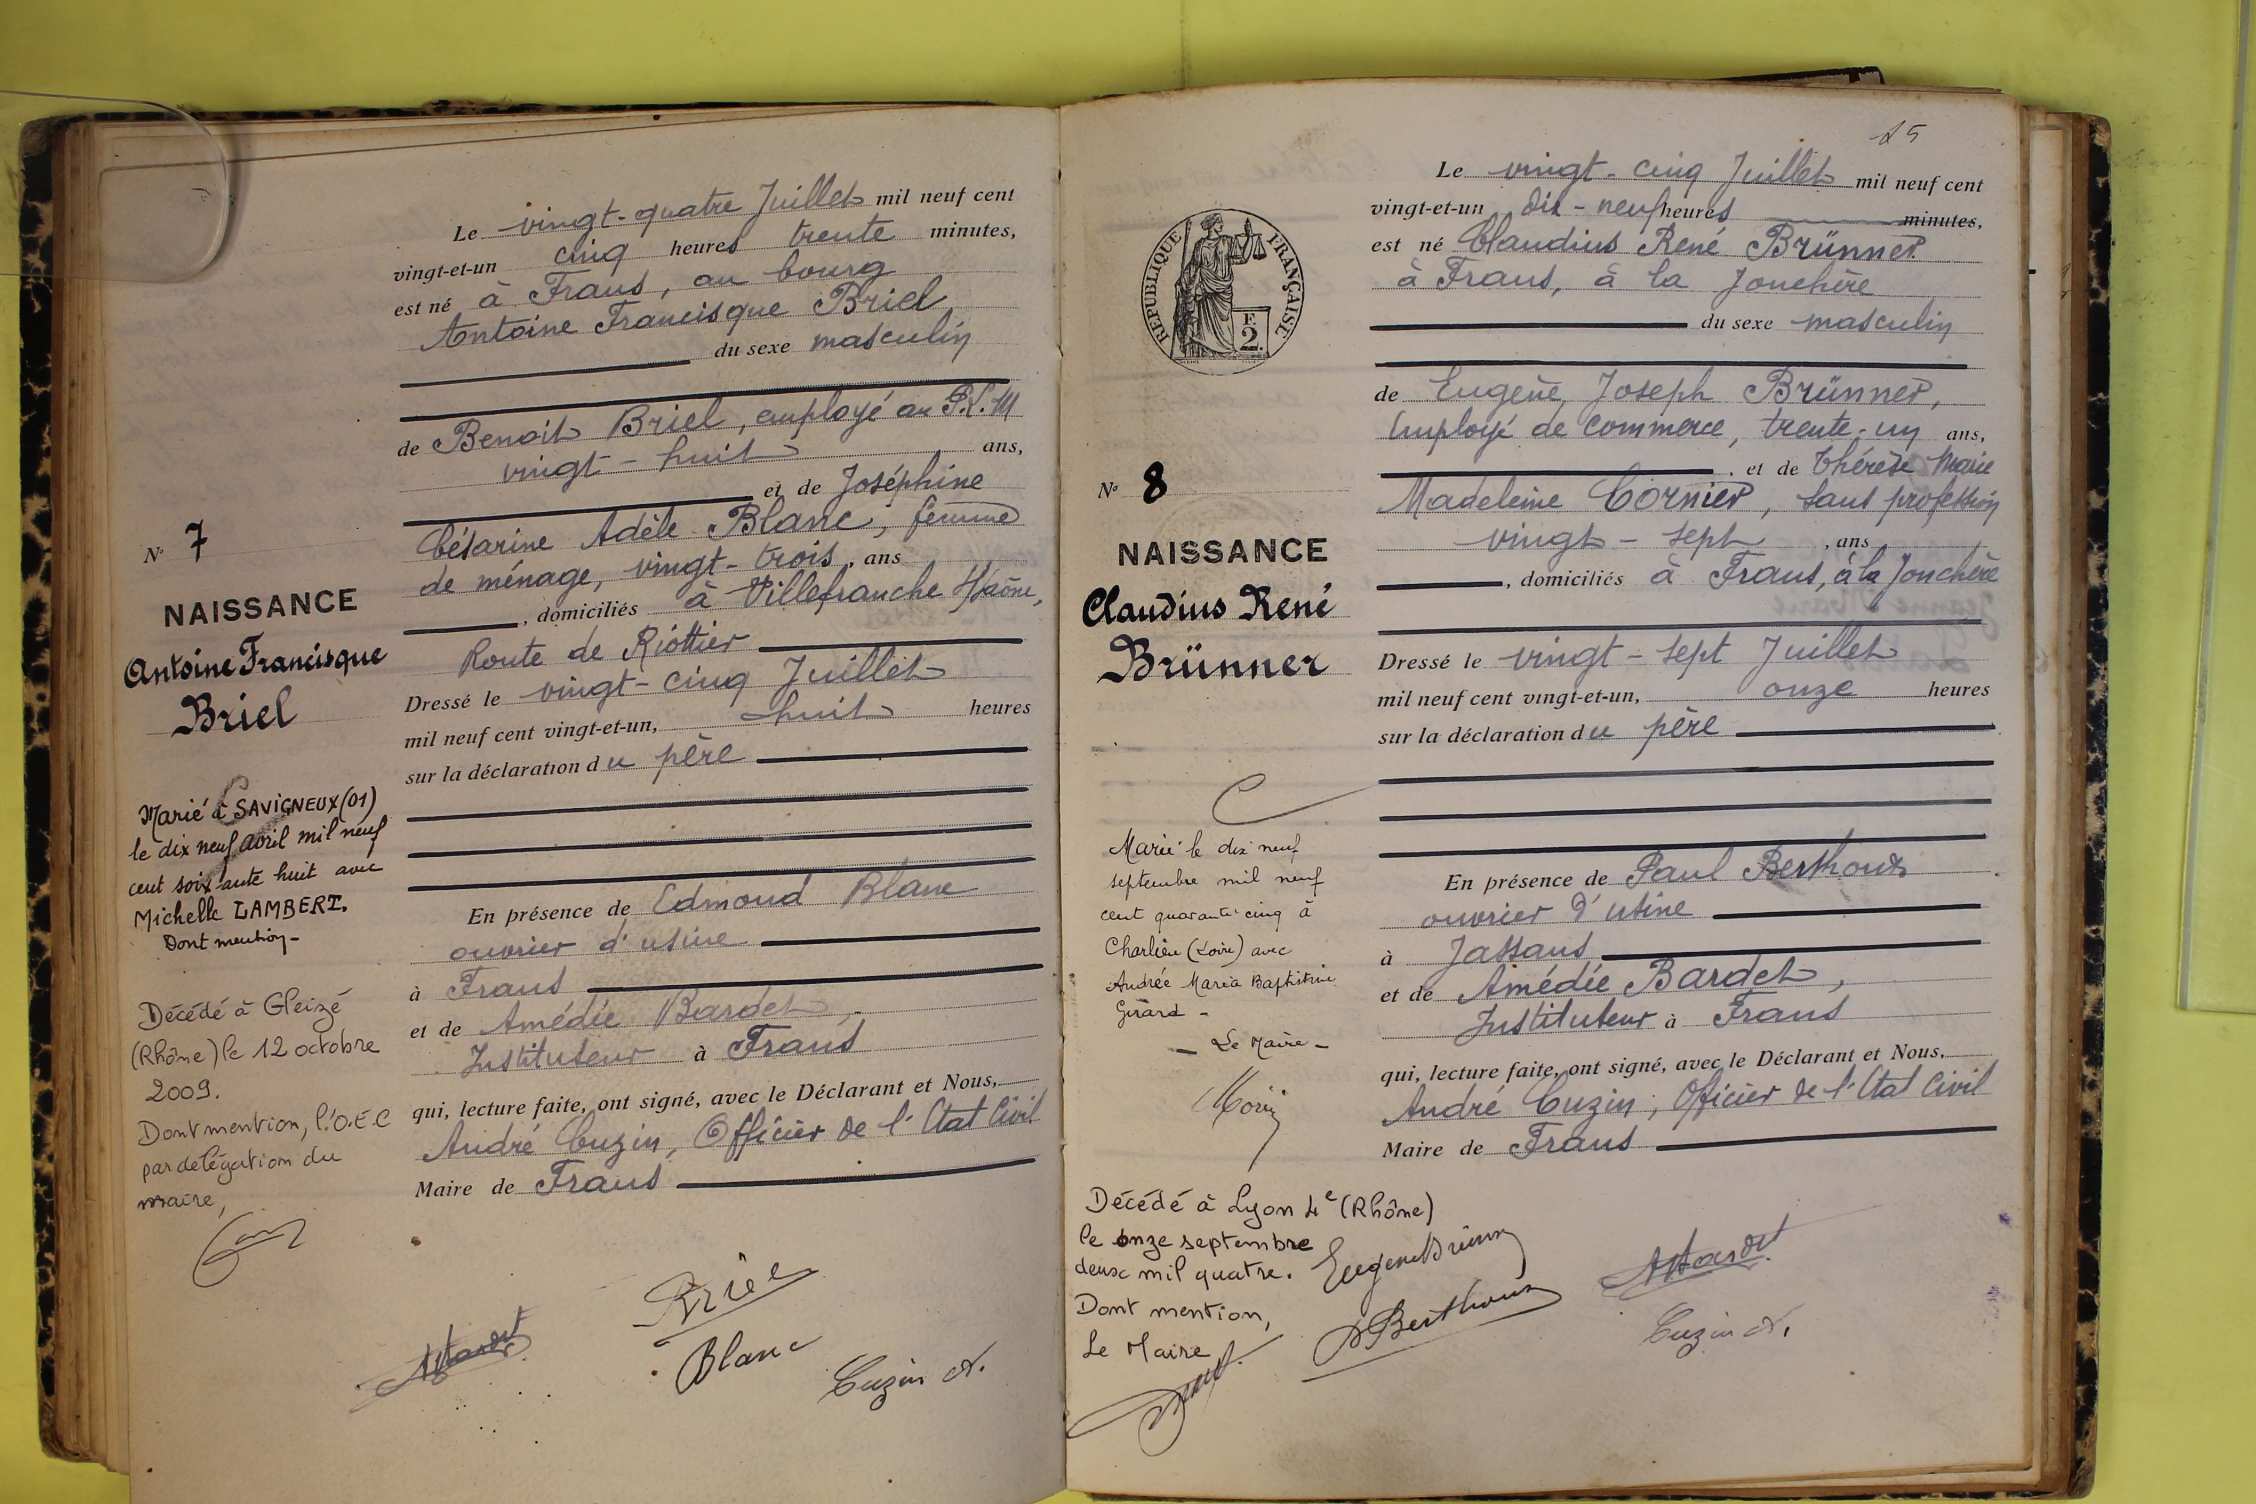 Le vingt-quatre Juillet mil neuf cent
vingt-et-un cinq heures trente minutes,
est né à Frans, au bourg
Antoine Francisque Briel
du sexe masculin
de Benoit Briel, employé au P.L.M
vingt-huit ans,
et de Joséphine
Césarine Adèle Blanc, femme
de ménage, vingt-trois, ans
, domiciliés à Villefranche s/Saône,
Route de Riottier
Dressé le vingt-cinq Juillet
mil neuf cent vingt-et-un, huit heures
sur la déclaration du père
En présence de Edmond Blanc
ouvrier d'usine
à Frans
et de Amédée Bardet,
Instituteur à Frans
qui, lecture faite, ont signé, avec le Déclarant et Nous,
André Cuzin, Officier de l'Etat Civil
Maire de Frans
Briel
Blanc
Cuzin A.
N° 7
NAISSANCE
Antoine Francisque
Briel
Marié à SAVIGNEUX (01)
le dix neuf avril mil neuf
cent soixante huit avec
Michelle LAMBERT.
Dont mention-
Décédé à Gleizé
(Rhône) le 12 octobre
2009.
Dont mention, l'O.E.C
par délégation du
maire,
25
Le vingt-cinq Juillet mil neuf cent
vingt-et-un dix-neuf heures minutes,
est né Claudius René Brünner
à Frans, à la Jonchère
du sexe masculin
de Eugène, Joseph Brünner,
Employé de commerce, trente-un ans,
, et de Thérèse Marie
Madeleine Cornier, sans profession
vingt-sept, ans
, domiciliés à Frans, à la Jonchère
Dressé le vingt-sept Juillet
mil neuf cent vingt-et-un, onze heures
sur la déclaration du père
En présence de Paul Berthoux
ouvrier d'usine
à Jassans
et de Amédée Bardet,
Instituteur à Frans
qui, lecture faite, ont signé, avec le Déclarant et Nous,
André Cuzin, Officier de l'Etat Civil
Maire de Frans
Eugène Brünner
PBerthoux
ABardet
Cuzin A.
RÉPUBLIQUE FRANÇAISE
F.
2.
N° 8
NAISSANCE
Claudius René
Brünner
Marié le dix neuf
septembre mil neuf
cent quarante cinq à
Charlieu (Loire) avec
Andrée Maria Baptistine
Girard -
- Le Maire -
Décédé à Lyon 4e (Rhône)
le onze septembre
deux mil quatre.
Dont mention,
Le Maire